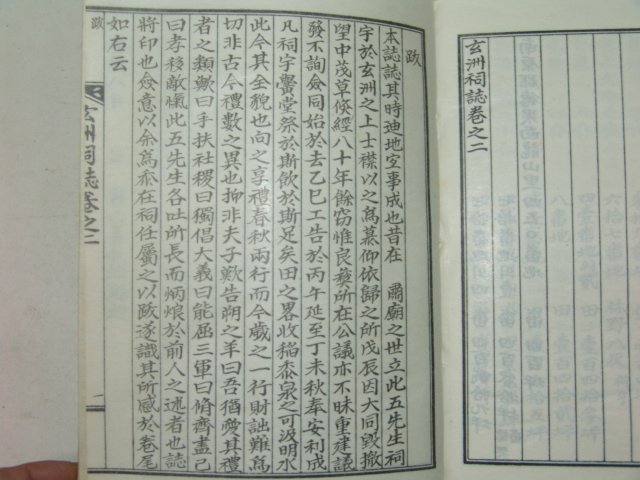 玄洲祠誌卷之二
跋
本誌誌其時迪地空事成也昔在 肅廟之世立此五先生祠
宇於玄洲之上士襟以之爲慕仰依歸之所戊辰因大同毁撤
望中茂草倐經八十年餘窃惟良彛所在公議亦不昧重建議
發不詢僉同始於去乙巳工告於丙午延至丁未秋奉安利成
凡祠宇黌堂祭於斯飮於斯足矣田之畧收稻黍泉之可汲明水
此今其全貌也向之享禮春秋兩行而今歲之一行財詘難爲
切非古今禮數之異也抑非夫子歎告朔之羊曰吾猶愛其禮
者之類歟曰手扶社稷曰獨倡大義曰能屈三軍曰脩齊盡己
曰孝移敵愾此五先生各吐所長而炳烺於前人之述者也誌
將印也僉意以余爲忝在祠任屬之以跋遂識其所感於卷尾
如右云
跋
玄洲祠誌卷之二
一